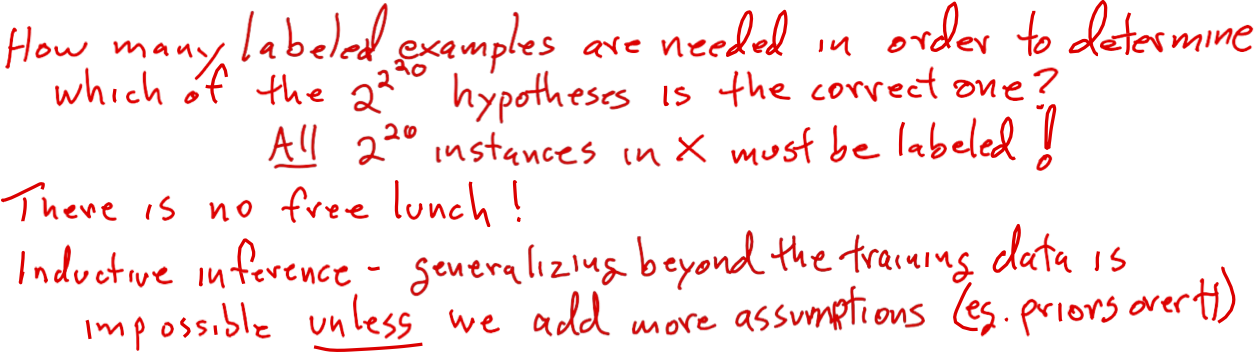 How many labeled examples are needed in order to determine
which of the 2^2^20 hypotheses is the correct one?
All 2^20 instances in X must be labeled!
There is no free lunch!
Inductive inference - generalizing beyond the training data is
impossible unless we add more assumptions (eg. priors over H)